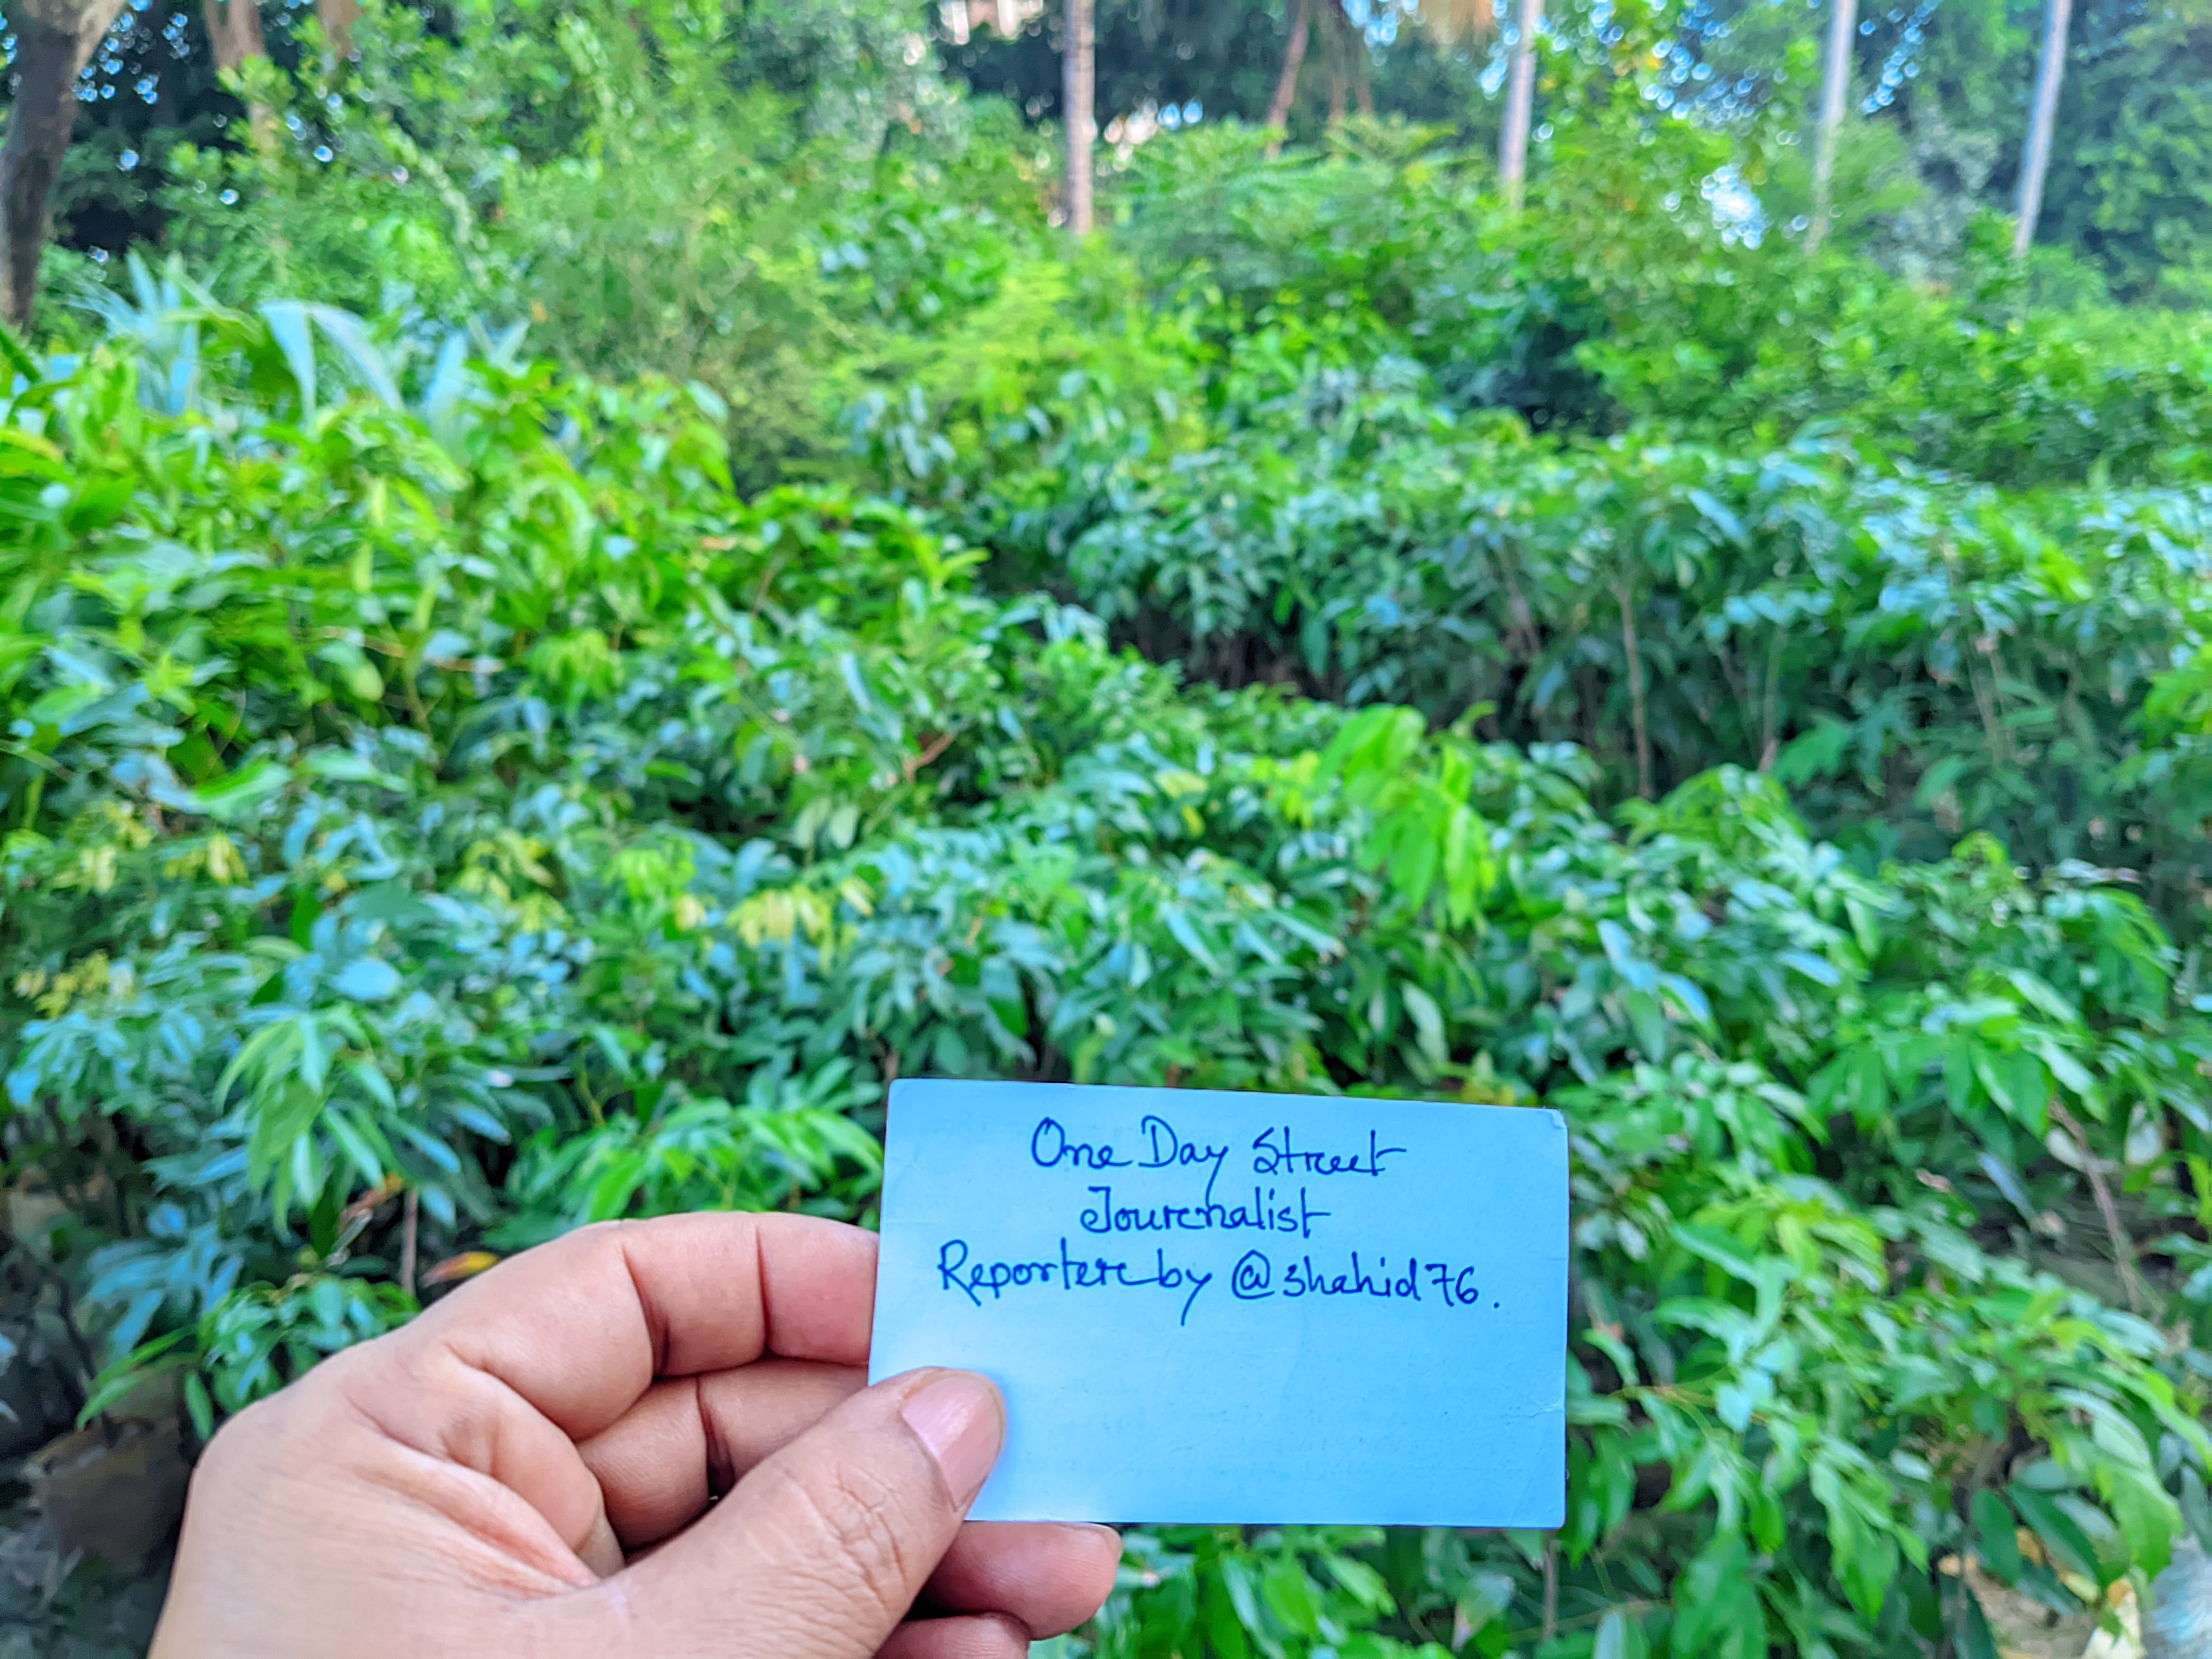 One Day Street
Journalist
Reporter by @shahid76.